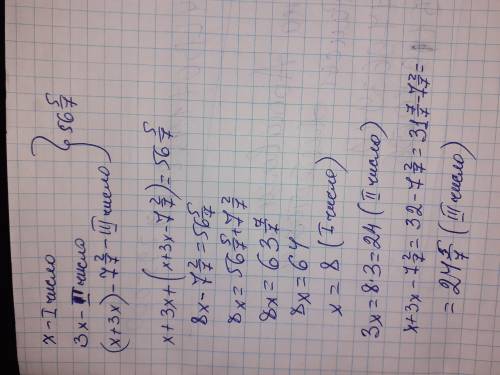 x - I число
3x - II число } 56 5/7
(x+3x) - 7 2/7 - III число
x+3x+(x+3x-7 2/7)=56 5/7
8x-7 2/7=56 5/7
8x=56 5/7+7 2/7
8x=63 7/7
8x=64
x=8 (I число)
3x=8·3=24 (II число)
x+3x-7 2/7=32-7 2/7=31 7/7-7 2/7=
=24 5/7 (III число)